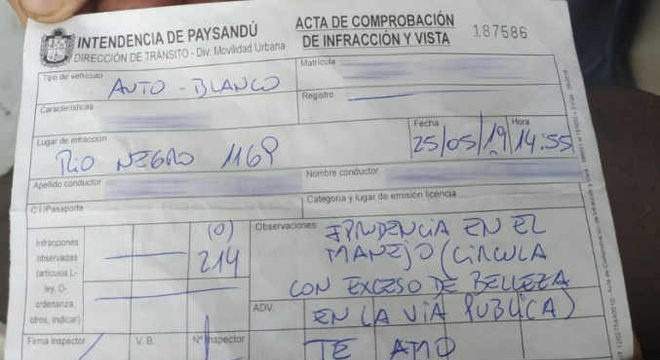 INTENDENCIA DE PAYSANDÚ
DIRECCIÓN DE TRÁNSITO - Div. Movilidad Urbana
ACTA DE COMPROBACIÓN
DE INFRACCIÓN Y VISTA
187586
Tipo de vehículo
AUTO - BLANCO
Matrícula
Características
Registro
Lugar de infracción
RIO NEGRO 1169
Fecha
25/05/19
Hora
14:55
Apellido conductor
Nombre conductor
C.I/Pasaporte
Categoría y lugar de emisión licencia
Infracciones
observadas
(artículos L-
ley, O-
ordenanza,
otros, indicar)
(O)
214
Observaciones
IPRUDENCIA EN EL
MANEJO (CIRCULA
CON EXCESO DE BELLEZA
ADV.
EN LA VÍA PUBLICA)
Firma Inspector
V. B.
Nº Inspector
TE AMO